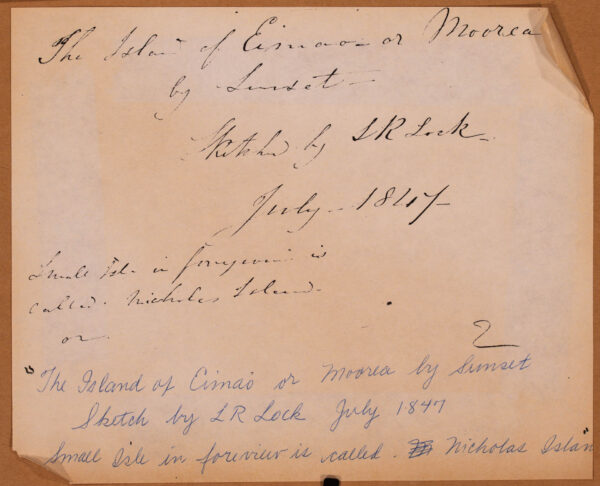 The Islan of Eimao or Moorea
by Sunset
Sketche by LR Lock.
July - 1847
Small Isle in foreyview is
called. Nicholas Island.
or
2
"The Island of Eimao or Moorea by Sunset
Sketch by LR Lock July 1847
Small Isle in foreview is called. Nicholas Islan